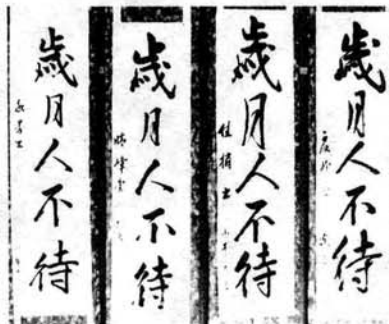 歳月人不待
歳月人不待
歳月人不待
歳月人不待